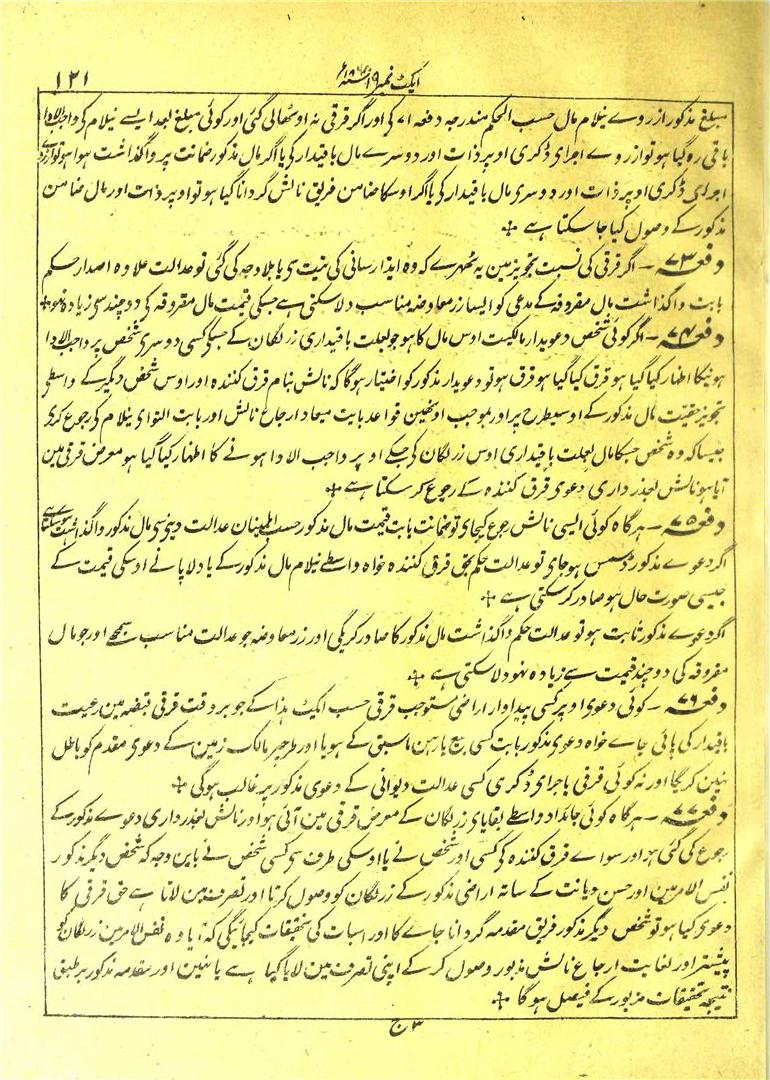 ایکٹ نمبر ۱۹ سنہ ۱۸۷۳ء
۱۲۱
مبلغ مذکور از روے نیلام مال حسب الحکم مندرجہ دفعہ ۷۱ کی اور اگر قرقی نہ اوٹھالی گئی اور کوئی مبلغ بعد ایسے نیلام کی واجب الادا
باقی رہ گیا ہو تو از روے اجرای ڈکری اوپر ذات اور دوسرے مال باقیدار کی یا اگر مال مذکور ضمانت پر واگذاشت ہوا ہو تو از روے
اجرای ڈکری اوپر ذات اور دوسری مال باقیدار کی یا اگر اوسکا ضامن فریق نالش گردانا گیا ہو تو اوپر ذات اور مال ضامن
مذکور کے وصول کیا جا سکتا ہے ❖
دفعہ ۷۳ — اگر قرقی کی نسبت تجویز مین یہ ٹھہرے کہ وہ ایذا رسانی کی نیت سی یا بلا وجہ کی گئی تو عدالت علاوہ اصدار حکم
بابت واگذاشت مال مقروقہ کے مدعی کو ایسا زر معاوضہ مناسب دلا سکتی ہے جسکی قیمت مال مقروقہ کی دوچند سی زیادہ نہو ❖
دفعہ ۷۴ — اگر کوئی شخص دعویدار مالکیت اوس مال کا ہو جو بعلت باقیداری زر لگان کے جسکی کسی دوسری شخص پر واجب الادا
ہونیکا اظہار کیا گیا ہو قرق کیا گیا ہو قرق ہو تو دعویدار مذکور کو اختیار ہوگا کہ نالش بنام قرق کنندہ اور اوس شخص دیگر کے واسطی
تجویز حقیت مال مذکور کے اوسیطرح پر اور بموجب اونھین قواعد بابت میعاد ارجاع نالش اور بابت التوای نیلام کی رجوع کری
جیسا کہ وہ شخص جسکا مال بعلت باقیداری اوس زر لگان کی جسکے اوپر واجب الادا ہونے کا اظہار کیا گیا ہو معرض قرقی مین
آیا ہو نالش بعذرداری دعوی قرق کنندہ کے رجوع کر سکتا ہے ❖
دفعہ ۷۵ — ہر گاہ کوئی ایسی نالش رجوع کیجای تو ضمانت بابت قیمت مال مذکور حسب اطمینان عدالت دینی سی مال مذکور واگذاشت ہو سکتا ہے
اگر دعوے مذکور ڈسمس ہو جای تو عدالت حکم بحق قرق کنندہ خواہ واسطے نیلام مال مذکور کے یا دلا پانے اوسکی قیمت کے
جیسی صورت حال ہو صادر کر سکتی ہے ❖
اگر دعوے مذکور ثابت ہو تو عدالت حکم واگذاشت مال مذکور کا صادر کریگی اور زر معاوضہ جو عدالت مناسب سمجھے اور جو مال
مقروقہ کی دوچند قیمت سے زیادہ نہو دلا سکتی ہے ❖
دفعہ ۷۶ — کوئی دعوی اوپر کسی پیداوار اراضی مستوجب قرقی حسب ایکٹ ہذا کے جو بروقت قرقی قبضہ مین رعیت
باقیدار کی پائی جاے خواہ دعوی مذکور بابت کسی بیع یا رہن ماسبق کے ہو یا اور طرحپر مالک زمین کے دعوی مقدم کو باطل
نہین کریگا اور نہ کوئی قرقی باجرای ڈکری کسی عدالت دیوانی کے دعوی مذکور پر غالب ہوگی ❖
دفعہ ۷۷ — ہر گاہ کوئی جائداد واسطے بقایای زر لگان کے معرض قرقی مین آئی ہو اور نالش بعذرداری دعوے مذکور کے
رجوع کی گئی ہو اور سواے قرق کنندہ کی کسی اور شخص نے یا اوسکی طرف سی کسی شخص نے باین وجہ کہ شخص دیگر مذکور
نفس الامر مین اور حسن دیانت کے ساتہ اراضی مذکور کے زر لگان کو وصول کرتا اور تصرف مین لاتا ہے حق قرقی کا
دعوی کیا ہو تو شخص دیگر مذکور فریق مقدمہ گردانا جاے گا اور اسبات کی تحقیقات کیجائیگی کہ آیا وہ نفس الامر مین زر لگان کو
پیشتر اور لغایت ارجاع نالش مزبور وصول کر کے اپنی تصرف مین لایا کیا ہے یا نہین اور مقدمہ مذکور بر طبق
نتیجہ تحقیقات مزبور کے فیصل ہوگا ❖
ج ۳